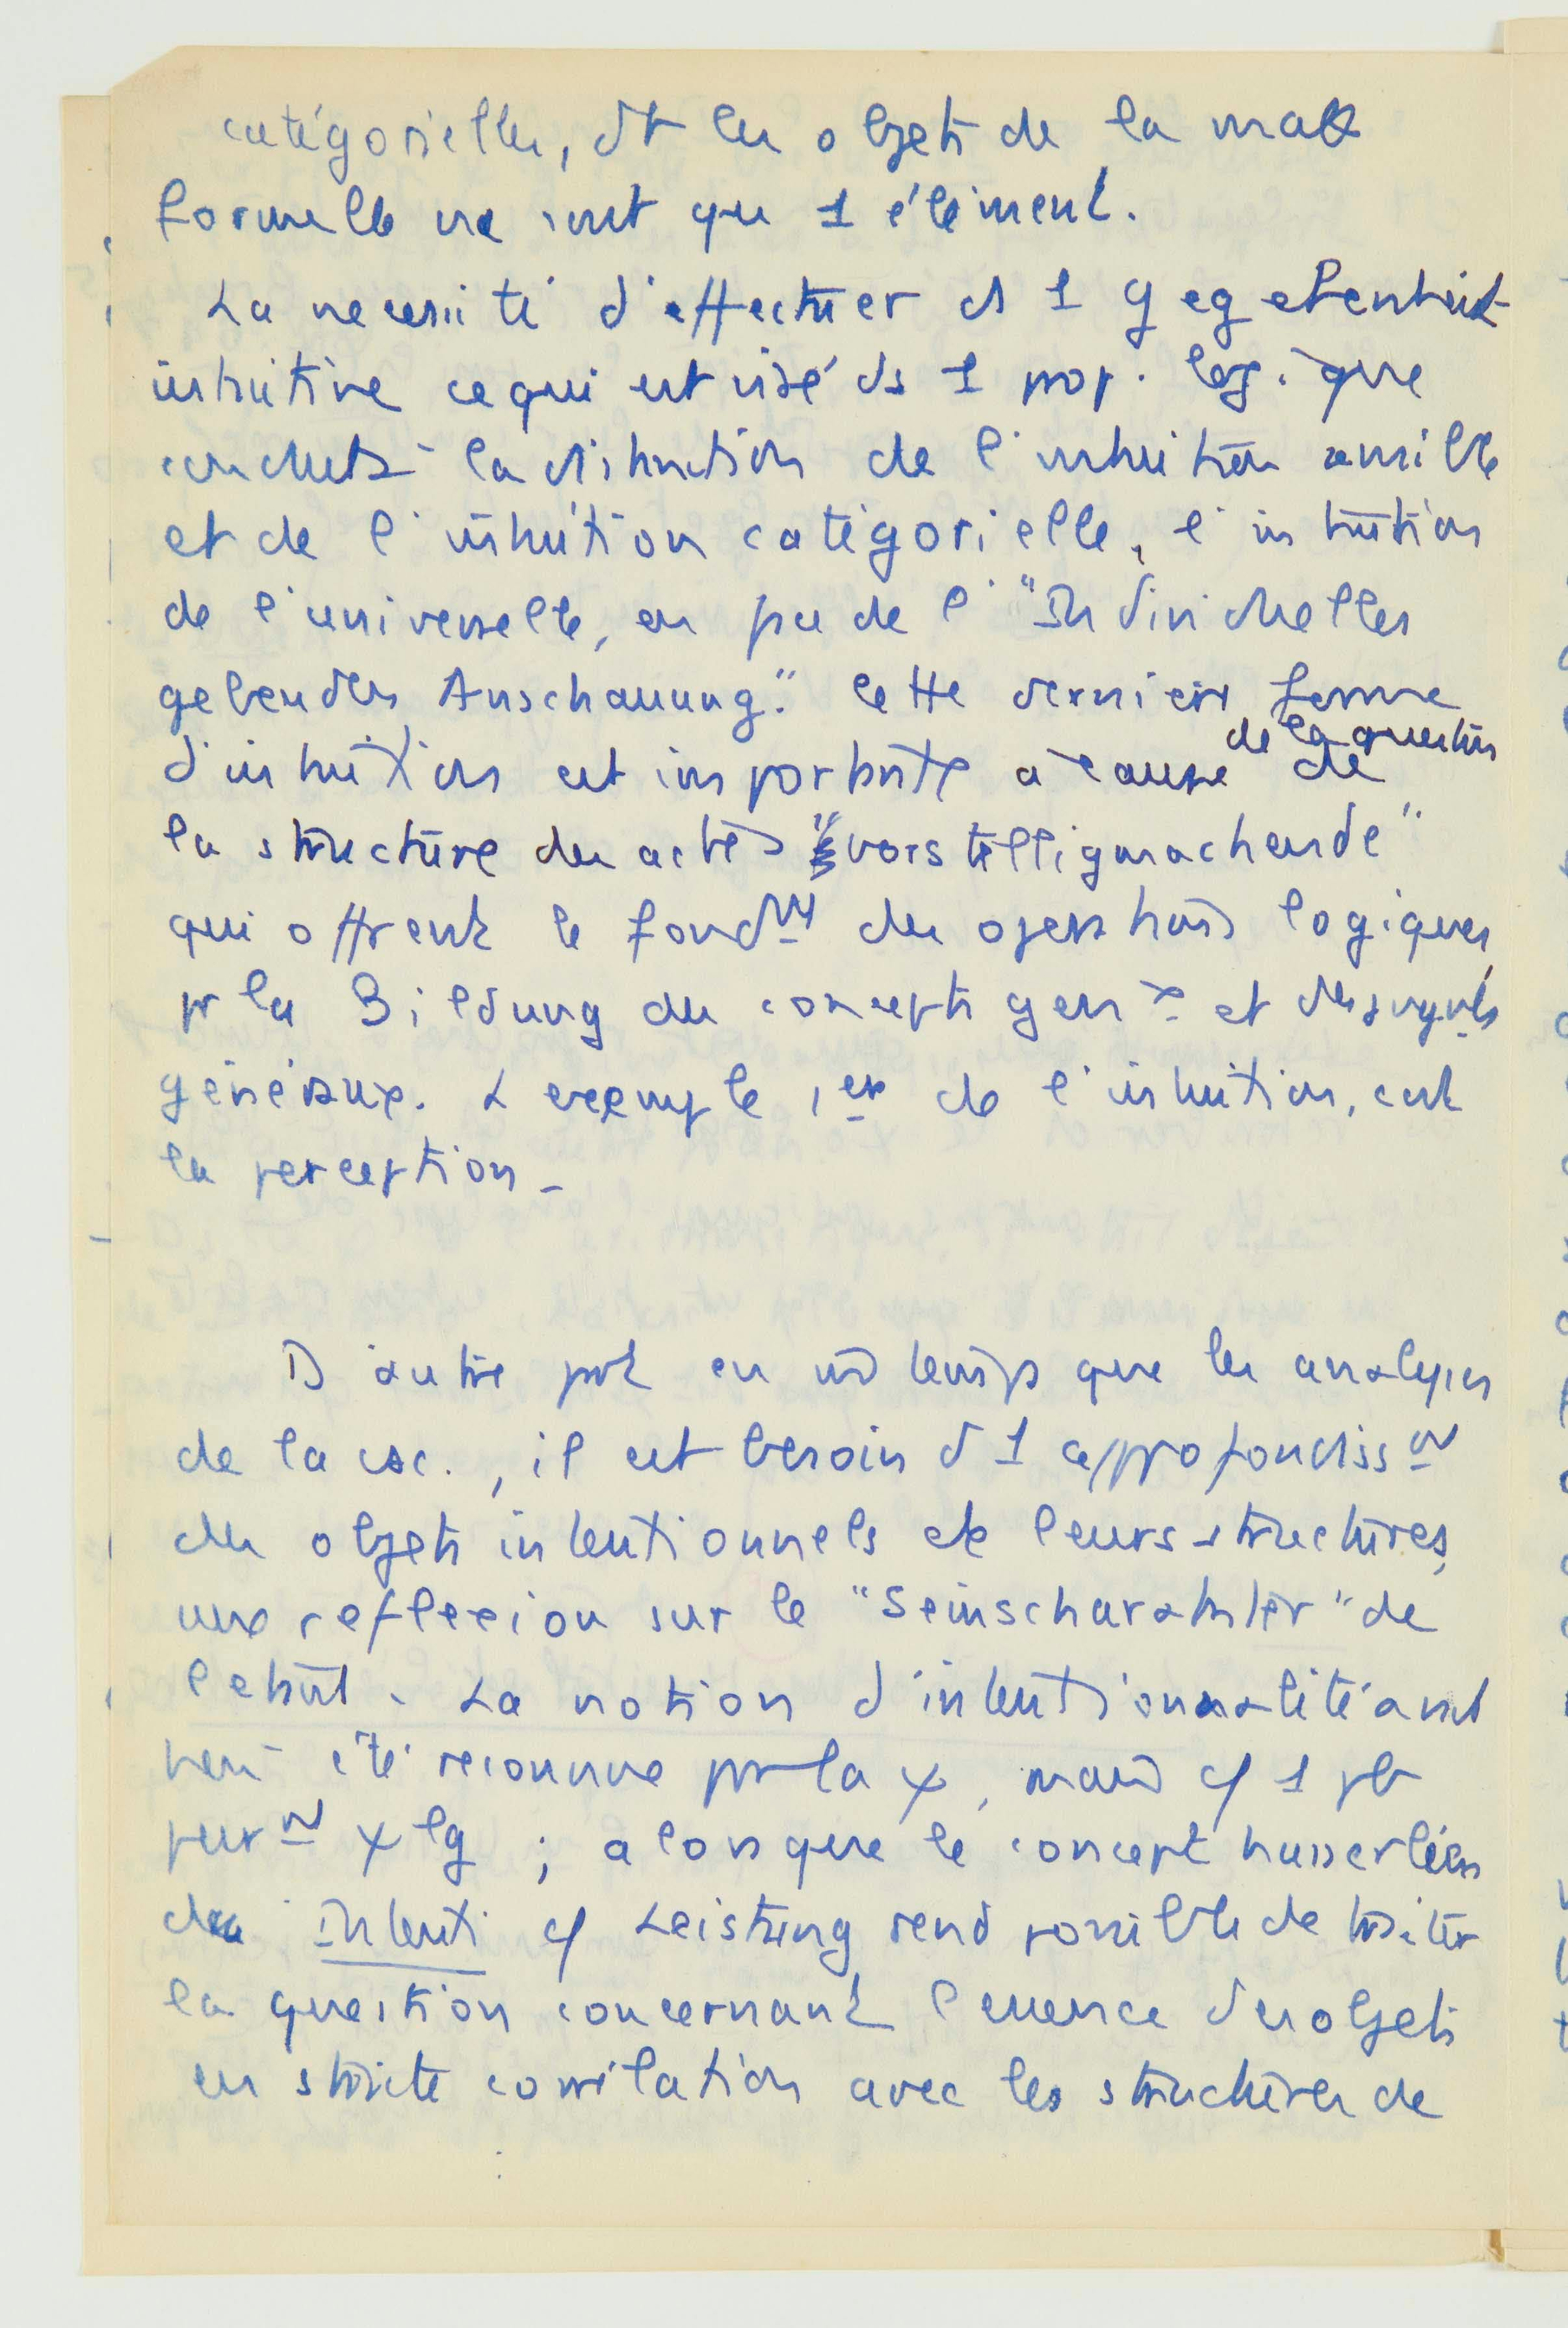 catégorielles, dt les objets de la math
formelle ne sont que 1 élément.
La necessité d'effectuer ds 1 gegebenheit
intuitive ce qui est visé ds 1 prop. logique
conduit à la distinction de l'intuition sensible
et de l'intuition catégorielle, l'intuition
de l'universelle, en face de l'"Individuelles
gebendes Anschauung." Cette derniere forme
d'intuition est importante à cause de la question de
la structure des actes "vorstelligmachende"
qui offrent le fondmt des operations logiques,
pr la Bildung des concepts genx et des jugmts
généraux. L exemple 1er de l'intuition, est
la perception -
D autre part en m̄ temps que les analyses
de la csc., il est besoin d 1 approfondissmt
des objets intentionnels et de leurs structures,
une reflexion sur le "Seinscharakter" de
l'etant. La notion d'intentionnalité avait
été reconnue par la ψ, mais cf 1 pb
purmt ψ lg ; alors que le concept husserlien
de Intenti cf Leistung rend possible de traiter
la question concernant l'essence des objets
en stricte corrélation avec les structures de